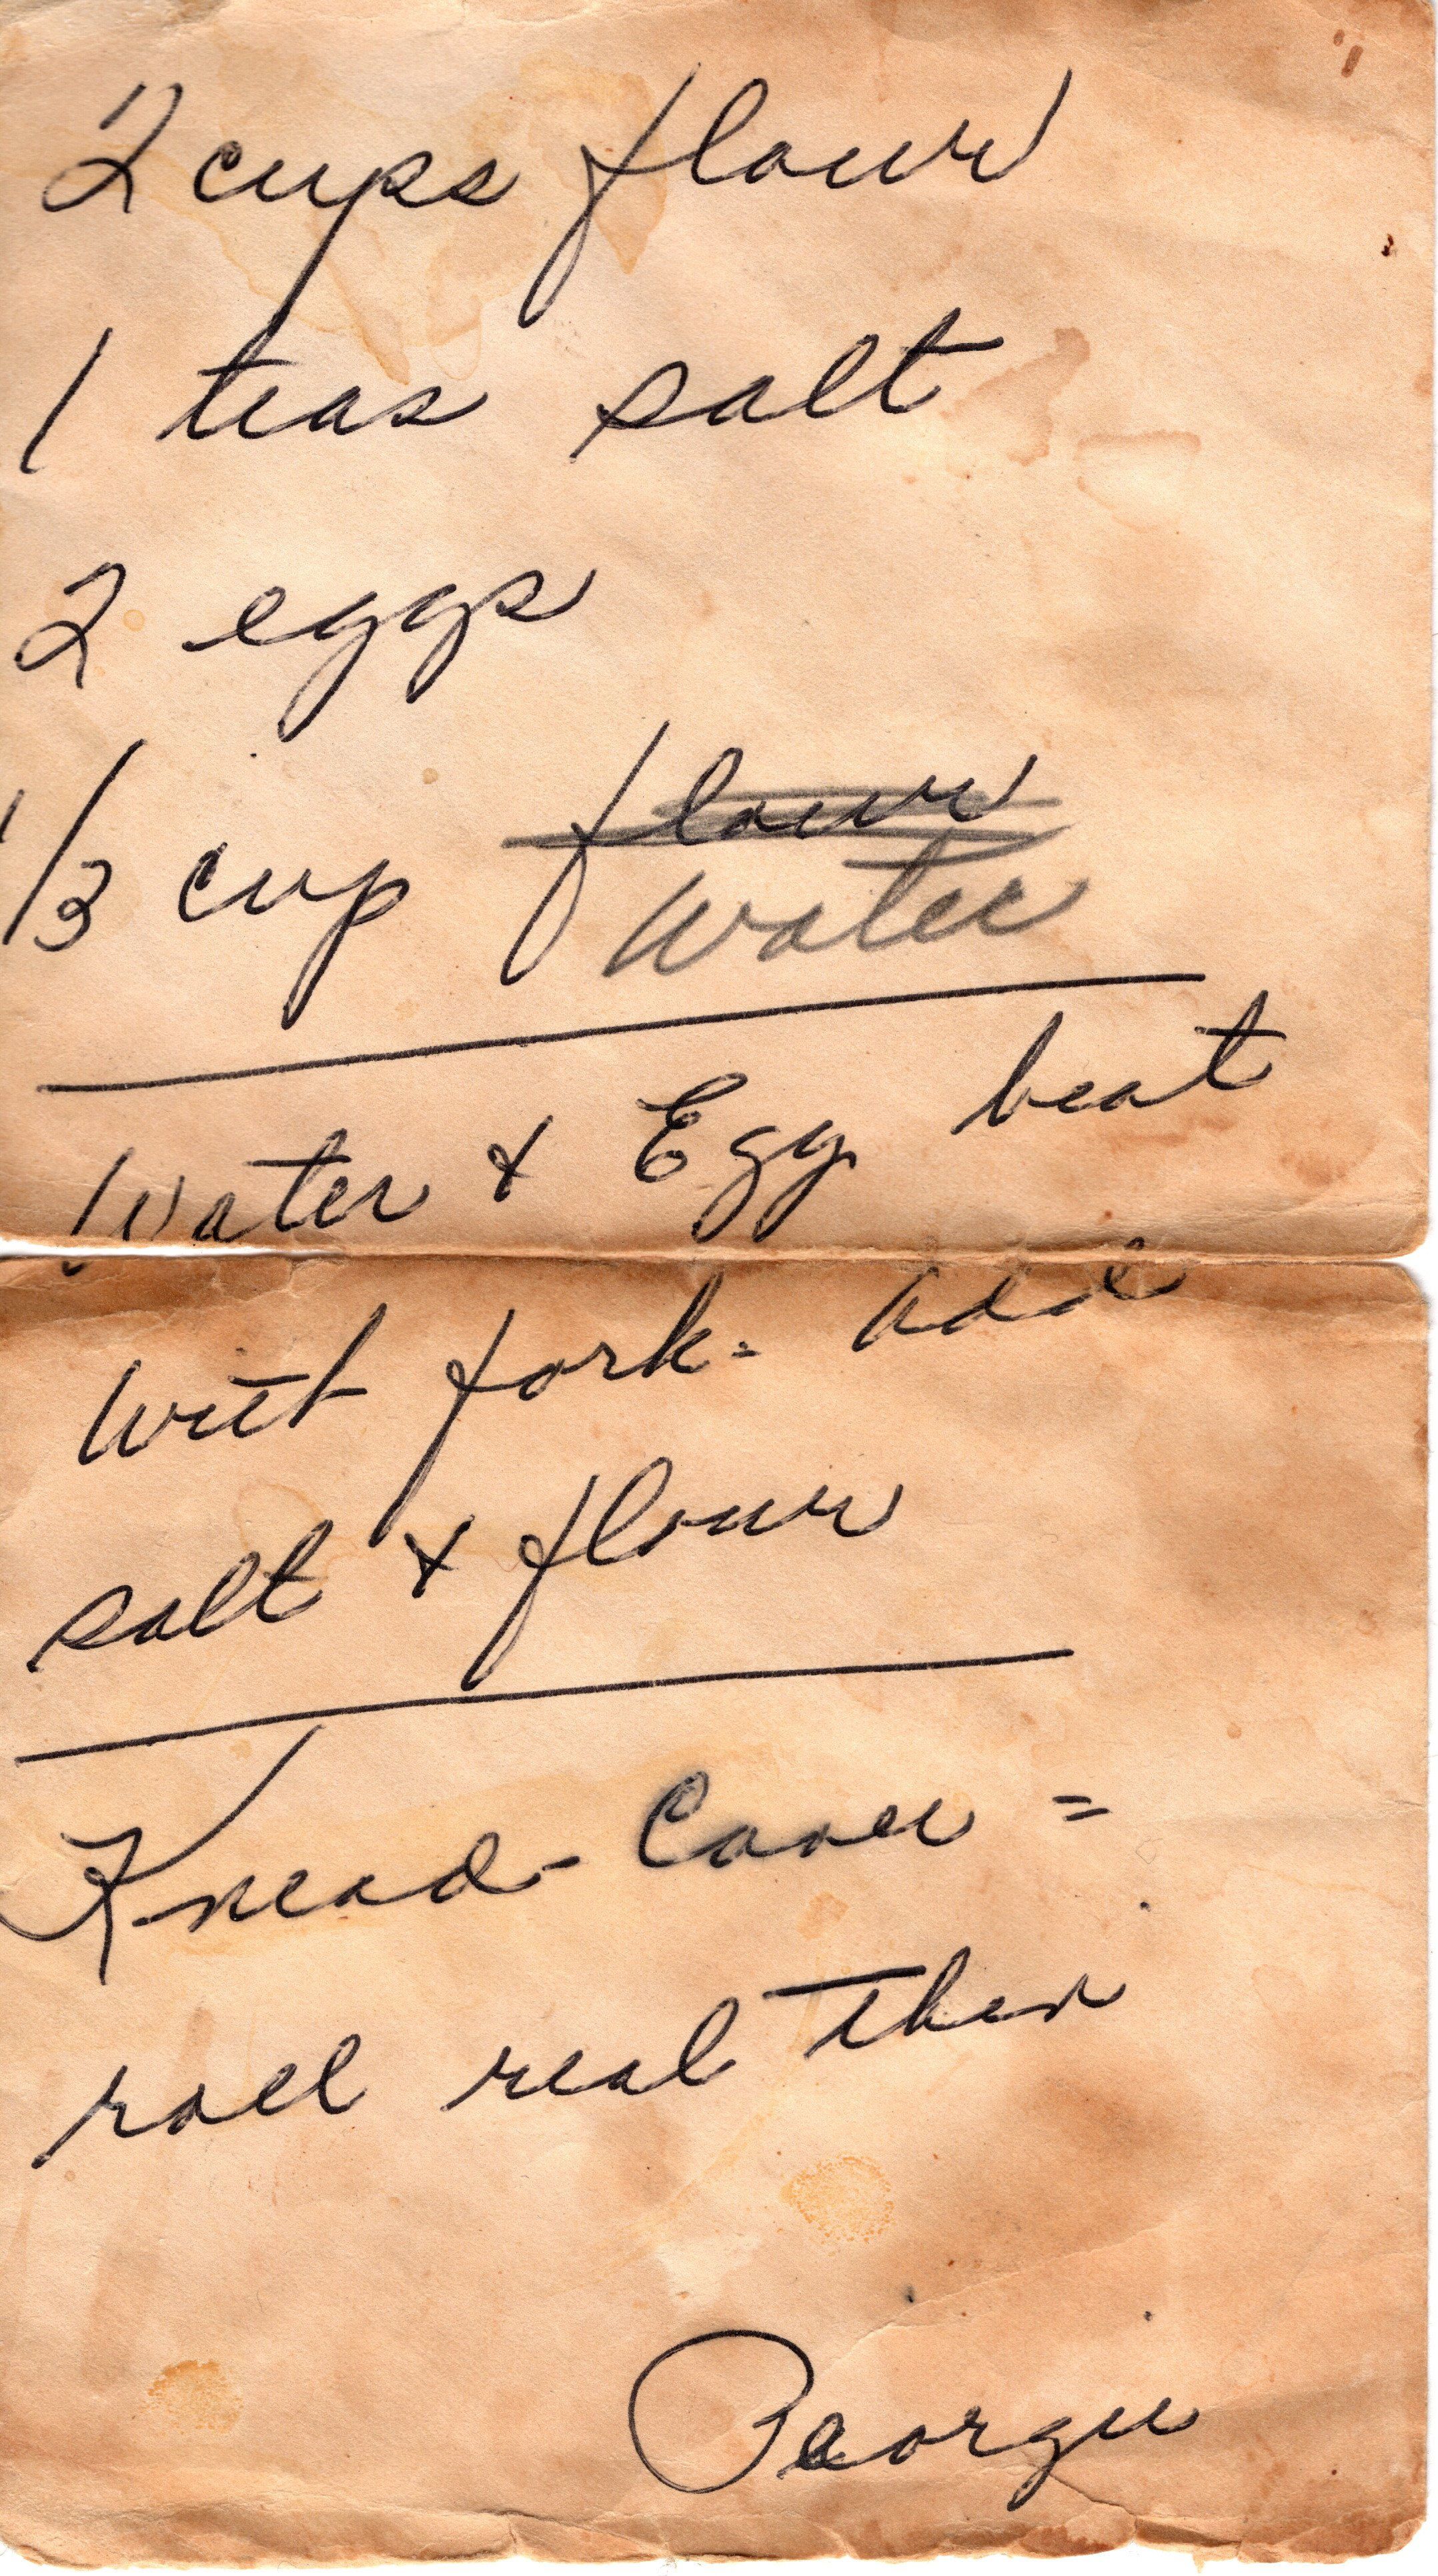 2 cups flour
1 teas salt
2 eggs
1/3 cup flour
water
Water & Egg beat
with fork - add
salt & flour
Knead - Cover =
roll real thin
Georgie